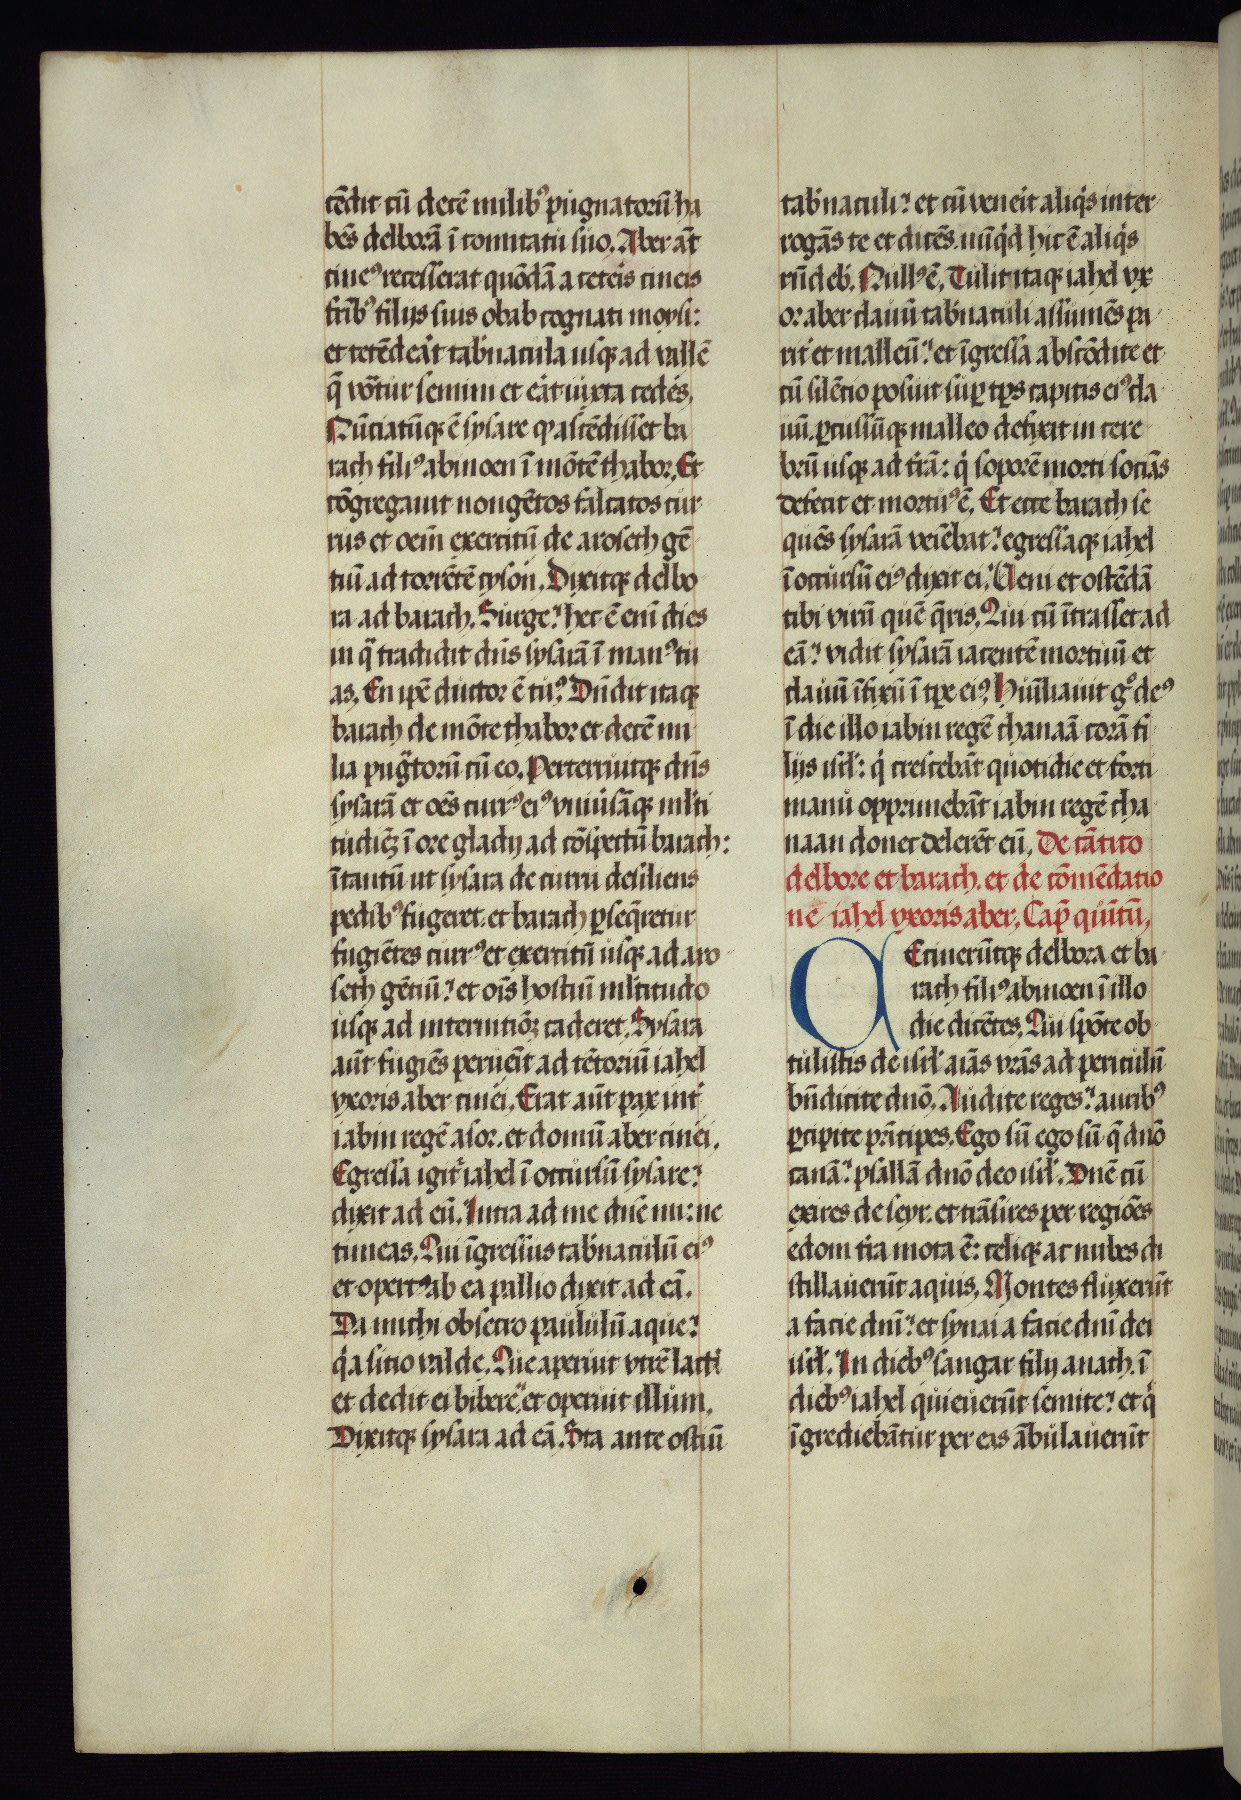 cēdit cū decē milibꝰ pugnatorū ha
bēs delborā ī comitatu suo. Aber aūt
cineꝰ recesserat quōdā a ceteis cineis
fribꝰ filijs suis obab cognati moysi:
et tetēdeāt tab'nacula usqꝫ ad vallē
q̄ vōtur sennim et eāt iuxta cedes.
Nūciatūqꝫ ē sysare ꝙ ascēdisset ba
rach filiꝰ abinoen ī mōtē thabor. Et
cōgregauit nongētos falcatos cur
rus et oēm exercitū de aroseth gē
tiū ad torrētē cyson. Dixitqꝫ delbo
ra ad barach. Surge? hec ē eni dies
in q̄ tradidit dn̄s sysarā ī manꝰ tu
as. En ipē ductor ē tuꝰ. Dn̄dit itaqꝫ
barach de mōte thabor et decē mi
lia pug̃torū cū eo. Perterruitqꝫ dn̄s
sysarā et oēs currꝰ eiꝰ vniuīsāqꝫ ml'ti
tudiēꝫ ī ore gladij ad cōspectū barach:
ītantū ut sysara de curru desiliens
pedibꝰ fugeret. et barach ꝑseq̄retur
fugiētes currꝰ et exercitū usqꝫ ad aro
seth gētiū? et oīs hostiū ml'titudo
usqꝫ ad internitiōꝫ caderet. Sysara
aūt fugiēs peruēit ad tētoriū iahel
vxoris aber cinei. Erat aūt pax int'
iabin regē asor. et domū aber cinei.
Egressa igit̄ iahel ī occursū sysare?
dixit ad eū. Intra ad me dn̄e mi: ne
timeas. Qui īgressus tab'naculū eiꝰ
et opertꝰ ab ea pallio dixit ad eā.
Da michi obsecro paululū aque?
q̇a sitio valde. Que aperuit vtrē lacti
et dedit ei bibere? et operuit illum.
Dixitqꝫ sysara ad eā. Sta ante ostiū
tab'naculi? et cū veneit aliq̇s inter
rogās te et dicēs. nūq̇d hic ē aliq̇s
rn̄deb'. Nullꝰ ē. Tulit itaqꝫ iahel vx
or aber clauū tab'naculi assumēs pa
rit' et malleū? et īgressa abscōdite et
cū silētio posuit sup̱ tp̄s capitis eiꝰ cla
uū. ꝑcussūqꝫ malleo defixit in cere
brū usqꝫ ad t'rā: q̇ soporē morti sociās
defecit et mortuꝰ ē. Et ecce barach se
quēs sysarā veiēbat? egressaqꝫ iahel
ī occursū eiꝰ dixit ei? Ueni et ostēdā
tibi virū quē q̄ris. Qui cū ītrasset ad
eā? vidit sysarā iacentē mortuū et
clauū īfixū ī tp̄e eiꝰ. Hūiliauit gͦ deꝰ
ī die illo iabin regē chanaā corā fi
lijs isrl': q̇ crescebāt quotidie et forti
manu opprimebāt iabin regē cha
naan donec delerēt eū. De cātico
delbore et barach. et de cōmēdatio
ne iahel vxoris aber. Cap̄ quītū.
CEcineruntqꝫ delbora et ba
rach filiꝰ abinoen ī illo
die dicētes. Qui spōte ob
tulistis de isrl' aīas vrās ad periculū
bn̄dicite dn̄o. Audite reges? auribꝰ
ꝑcipite prīcipes. Ego sū ego sū q̄ dn̄o
canā? psallā dn̄o deo isrl'. Dn̄e cū
exires de seyr. et trāsires per regiōes
edom t'ra mota ē: celiqꝫ ac nubes di
stillauerūt aquis. Montes fluxerūt
a facie dn̄i? et synai a facie dn̄i dei
isrl'. In diebꝰ sangar filij anath. ī
diebꝰ iahel quieuerūt semite? et q̇
īgrediebātur per eas ābulauerūt